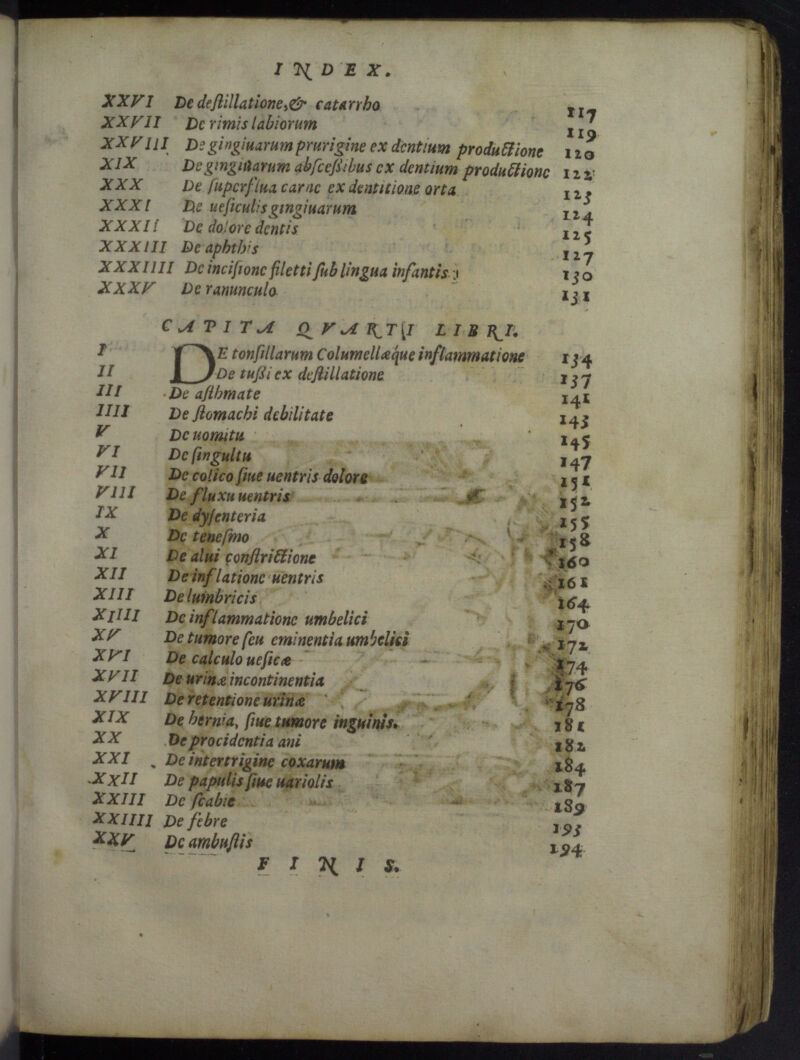 INDEX.
XXVI De deſtillatione, & catarrho 117
XXVII De rimis labiorum 119
XXVIII De gingiuarum prurigine ex dentium productione 120
XIX De gingiuarum abſceſsibus ex dentium productione 122
XXX De ſuperflua carne ex dentitione orta 123
XXXI De ueſiculis gingiuarum 124
XXXII De dolore dentis 125
XXXIII De aphthis 127
XXXIIII De inciſione filetti ſub lingua infantis 130
XXXV De ranunculo 131
CAPITA QVARTI LIBRI.
I DE tonſillarum Columellæque inflammatione 134
II De tuſsi ex deſtillatione 137
III De aſthmate 141
IIII De ſtomachi debilitate 143
V De uomitu 145
VI De ſingultu 147
VII De colico ſiue uentris dolore 151
VIII De fluxu uentris 152
IX De dyſenteria 155
X De teneſmo 158
XI De alui conſtrictione 160
XII De inflatione uentris 161
XIII De lumbricis 164
XIIII De inflammatione umbelici 170
XV De tumore ſeu eminentia umbelici 172
XVI De calculo ueſicæ 174
XVII De urinæ incontinentia 176
XVIII De retentione urinæ 178
XIX De hernia, ſiue tumore inguinis. 181
XX De procidentia ani 182
XXI De intertrigine coxarum 184
XXII De papulis ſiue uariolis 187
XXIII De ſcabie 189
XXIIII De febre 193
XXV De ambuſtis 194
FINIS.